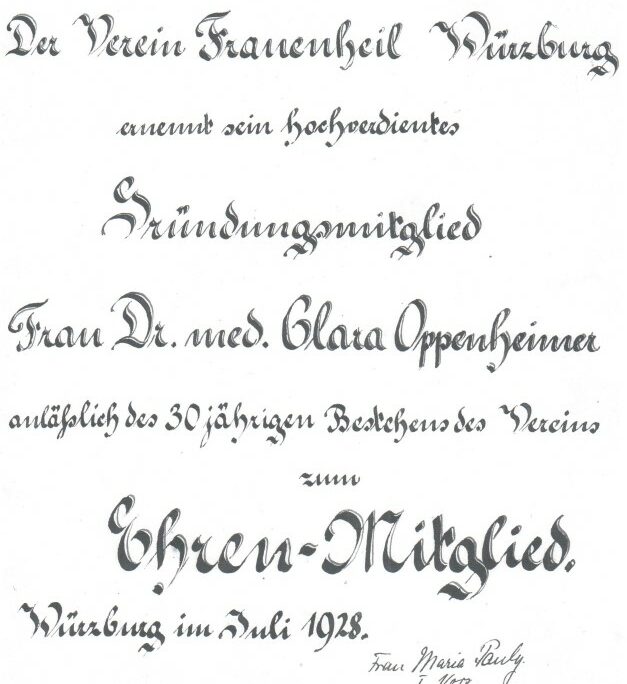 Der Verein Frauenheil Würzburg
ernennt sein hochverdientes
Gründungsmitglied
Frau Dr. med. Clara Oppenheimer
anläßlich des 30 jährigen Bestehens des Vereins
zum
Ehren-Mitglied.
Würzburg im Juli 1928.
Frau Maria Pauly.
I. Vors.